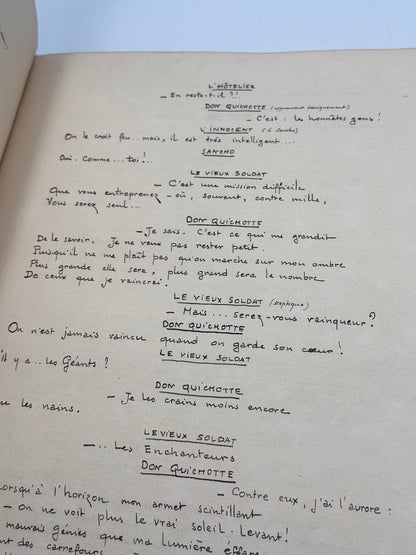 L'HÔTELIER
— En reste-t-il ?!
DON QUICHOTTE
— C'est : les honnêtes gens !
L'INNOCENT (à Sancho)
On le croit fou... mais, il est très intelligent...
SANCHO
Oui. Comme... toi !..
LE VIEUX SOLDAT
— C'est une mission difficile
Que vous entreprenez — où, souvent, contre mille,
Vous serez seul...
DON QUICHOTTE
— Je sais. C'est ce qui me grandit
De le savoir. Je ne veux pas rester petit.
Puisqu'il ne me plaît pas qu'on marche sur mon ombre
Plus grande elle sera, plus grand sera le nombre
De ceux que je vaincrai.
LE VIEUX SOLDAT (sceptique)
— Mais... serez-vous vainqueur ?
DON QUICHOTTE
On n'est jamais vaincu quand on garde son cœur !
LE VIEUX SOLDAT
'il y a... les Géants ?
DON QUICHOTTE
— Je les crains moins encore
les nains.
LE VIEUX SOLDAT
—... Les Enchanteurs
DON QUICHOTTE
— Contre eux, j'ai l'aurore :
Lorsqu'à l'horizon mon armet scintillant
— On ne voit plus le vrai soleil. Levant !
mauvais génies que ma lumière effare
des carrefours